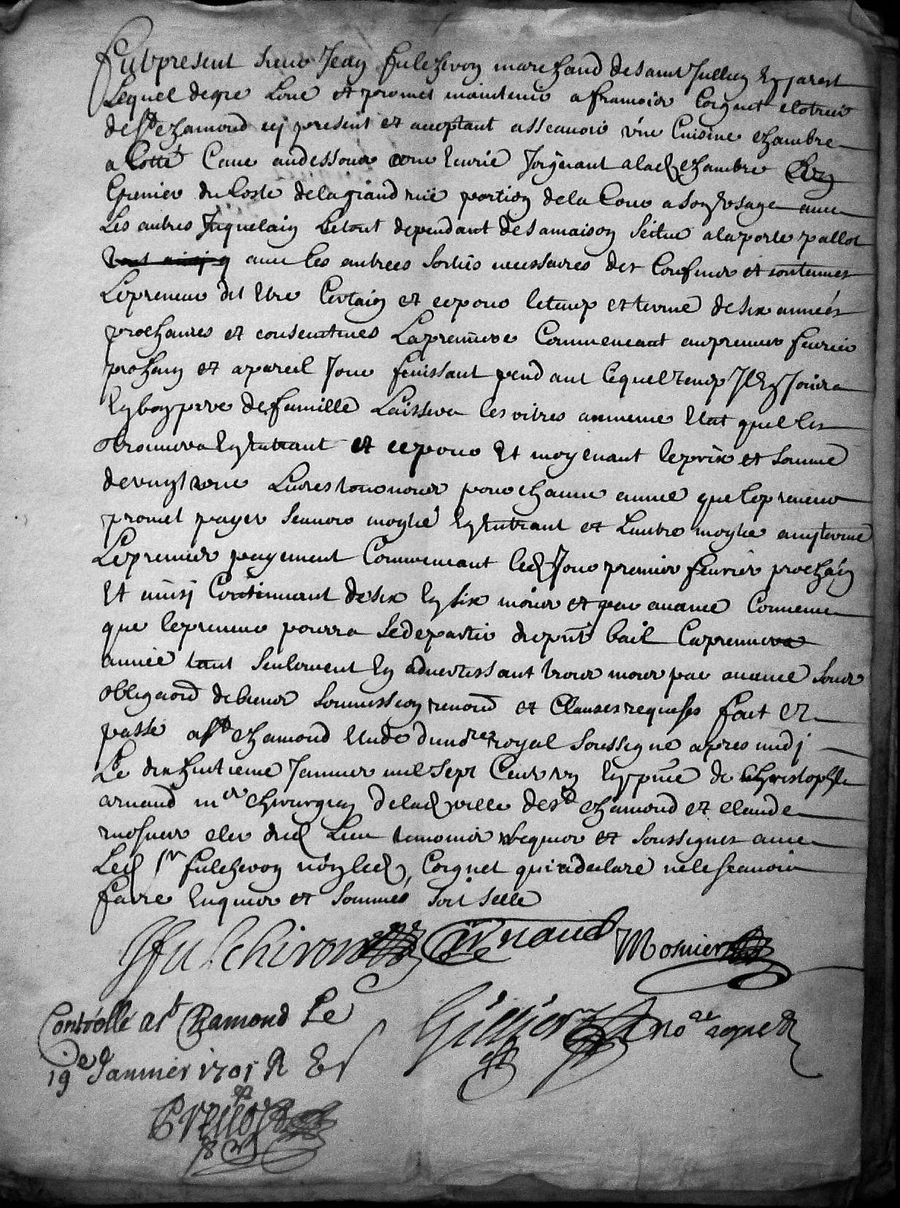 Fut present sieur Jean fulchiron marchand de saint Jullien En Jarest
Lequel de gre Loue et promet maintenir a francois Coignet
de st chamond icy present et acceptant asscavoir vne Cuisine chambre
a Cotté Cave audessous vne Ecurie Joignant a lad chambre En
Grenier du Coste de la grand rue portion de la Cour a son Vsage avec
Les autres Jnquelain Le tout dependant de sa maison scitue a la porte pallot
avec les entrees sorties necessaires des Confiner et contenues
Le preneur dit Etre Certain et ce pour le temp et terme de six années
prochaines et consecutives La premiere Commencant au premier fevrier
prochain et a pareil Jour finissant pendant Lequel temp Jl En Jouira
En bon pere de famille Laissera les vitres au meme Etat quel les
trouvera En Entrant et ce pour Et moyenant le prix et somme
de vingt une Livres tournois pour chacune année que le preneur
promet payer scavoir moytie En Entrant et Lautre moytie
Le premier payement Commencant led Jour premier fevrier prochain
Et ainsi Continuant de six En six mois et par avance Convenu
que le preneur pourra se departir du pnt bail La premiere
année tant seulement En advertissant trois mois par avance sous
obligaons de biens soumission renons et Clauses requises fait Et
passé a st chamond Etude du nre royal soussigne apres midj
Le dixhuitieme Janvier mil sept Cent vn En pnce de Christophle
arnaud mre chirurgien de lad ville de st chamond et claude
mosnier clerc dud Lieu temoins requis et soussignes avec
Led sr fulchiron non led Coignet qui a declare ne le scavoir
faire Enquis et sommés soit sellé
Jfulchiron Arnaud Mosnier
Gillier nore royal
Controllé a st Chamond Le
19e Janvier 1701 R